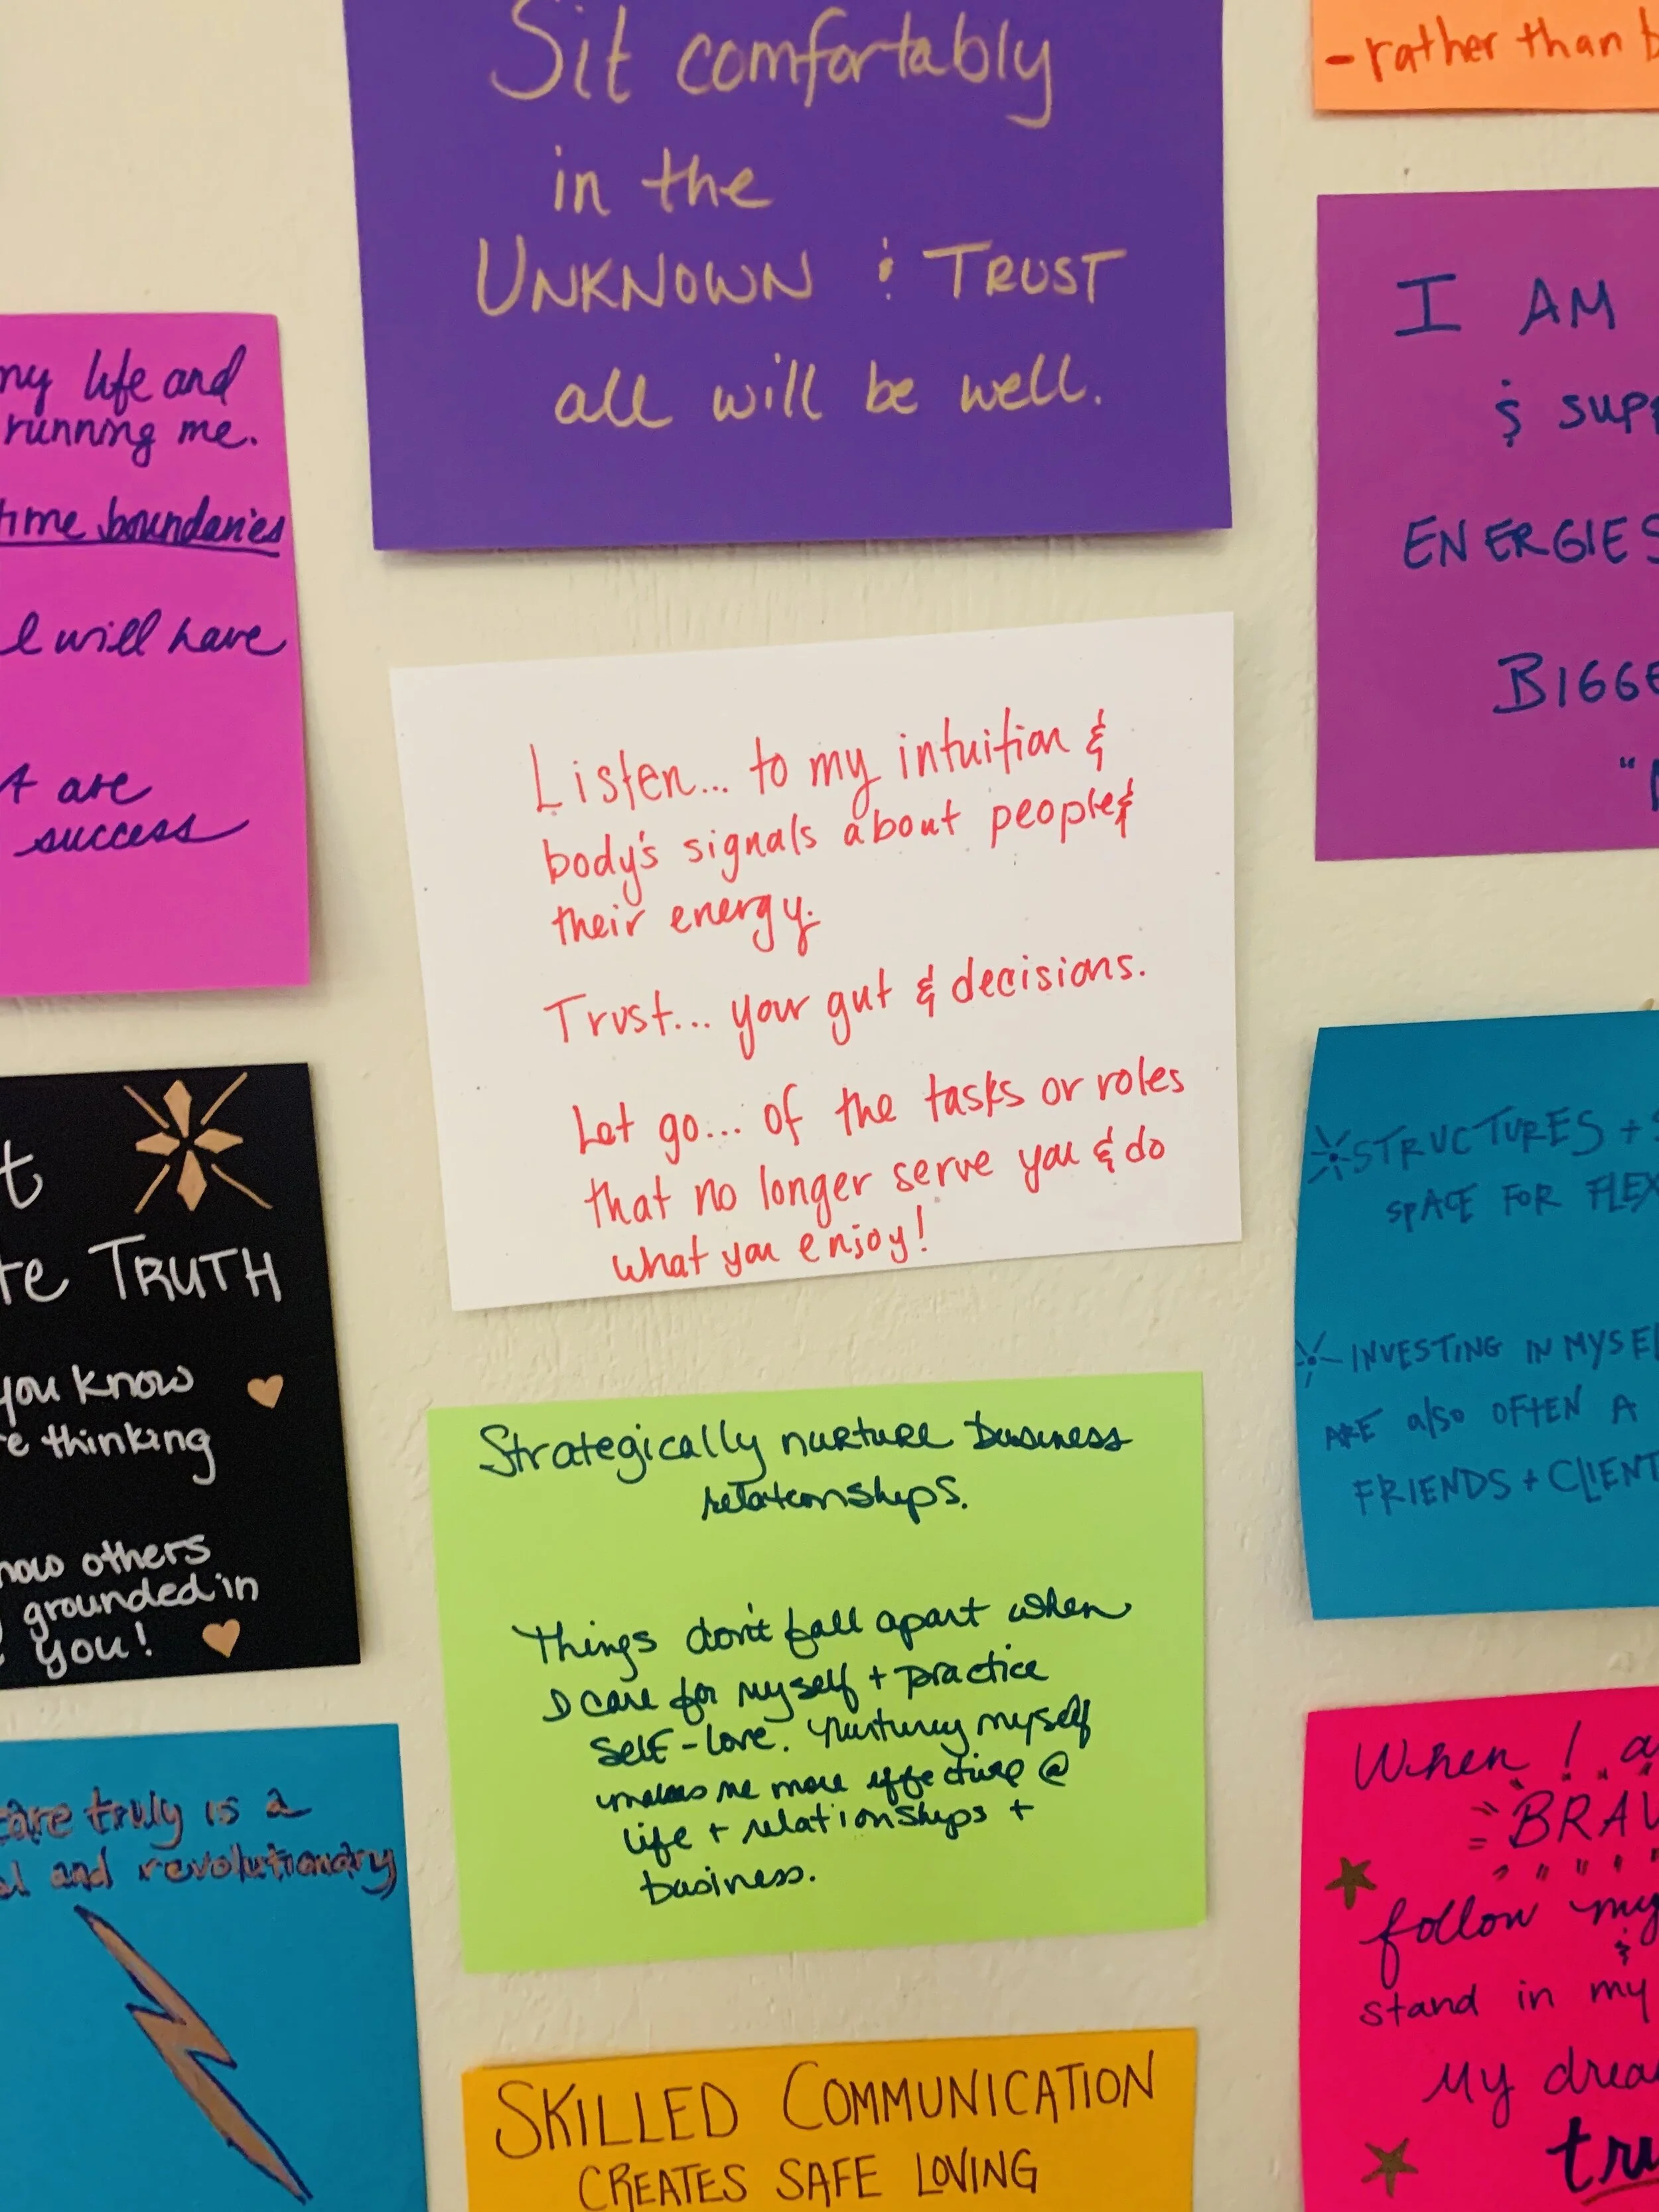 Sit comfortably
in the
UNKNOWN & TRUST
all will be well.
- rather than b
my life and
running me.
time boundaries
I will have
are
success
I AM
& SUPP
ENERGIES
BIGGE
Listen... to my intuition &
body's signals about people &
their energy.
Trust... your gut & decisions.
Let go... of the tasks or roles
that no longer serve you & do
what you enjoy!
t
te TRUTH
you know
e thinking
now others
grounded in
you!
STRUCTURES + S
SPACE FOR FLEX
INVESTING IN MYSEL
ARE also OFTEN A
FRIENDS + CLIENT
Strategically nurture business
relationships.
Things don't fall apart when
I care for myself + practice
self-love. Nurturing myself
makes me more effective @
life + relationships +
business.
care truly is a
al and revolutionary
When I a
BRAV
follow my
&
stand in my
My drea
tru
SKILLED COMMUNICATION
CREATES SAFE LOVING